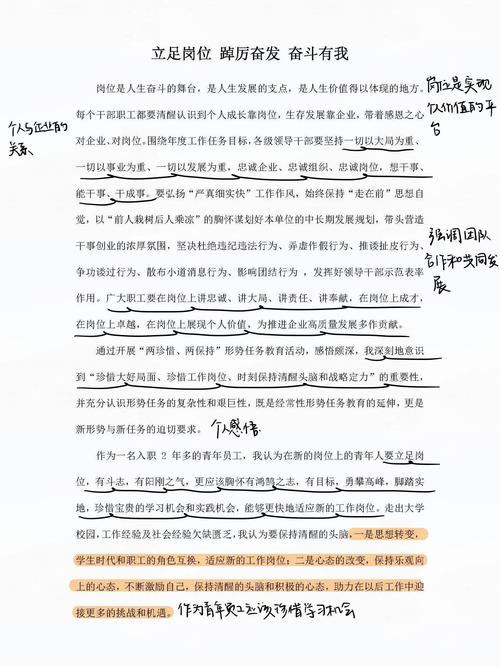 立足岗位 踔厉奋发 奋斗有我
岗位是人生奋斗的舞台，是人生发展的支点，是人生价值得以体现的地方。
每个干部职工都要清醒认识到个人成长靠岗位，生存发展靠企业，带着感恩之心
对企业、对岗位。围绕年度工作任务目标，各级领导干部要坚持一切以大局为重、
一切以事业为重、一切以发展为重，忠诚企业、忠诚组织、忠诚岗位，想干事、
能干事、干成事。要弘扬“严真细实快”工作作风，始终保持“走在前”思想自
觉，以“前人栽树后人乘凉”的胸怀谋划好本单位的中长期发展规划，带头营造
干事创业的浓厚氛围，坚决杜绝违纪违法行为、弄虚作假行为、推诿扯皮行为、
争功诿过行为、散布小道消息行为、影响团结行为 ，发挥好领导干部示范表率
作用。广大职工要在岗位上讲忠诚、讲大局、讲责任、讲奉献，在岗位上成才，
在岗位上卓越，在岗位上展现个人价值，为推进企业高质量发展多作贡献。
通过开展“两珍惜、两保持”形势任务教育活动，感悟颇深，我深刻地意识
到“珍惜大好局面、珍惜工作岗位、时刻保持清醒头脑和战略定力”的重要性，
并充分认识形势任务的复杂性和艰巨性，既是经常性形势任务教育的延伸，更是
新形势与新任务的迫切要求。
作为一名入职 2 年多的青年员工，我认为在新的岗位上的青年人要立足岗
位，有斗志，有阳刚之气，更应该胸怀有鸿鹄之志，有目标，勇攀高峰，脚踏实
地，珍惜宝贵的学习机会和实践机会，能够更快地适应新的工作岗位。走出大学
校园，工作经验及社会经验欠缺匮乏，我认为要保持清醒的头脑，一是思想转变，
学生时代和职工的角色互换，适应新的工作岗位；二是心态的改变，保持乐观向
上的心态，不断激励自己，保持清醒的头脑和积极的心态，助力在以后工作中迎
接更多的挑战和机遇。
岗位是实现
个人价值的平
台
个人与企业的
关系
强调团队
合作和共同发
展
个人感悟
作为青年员工应该珍惜学习机会